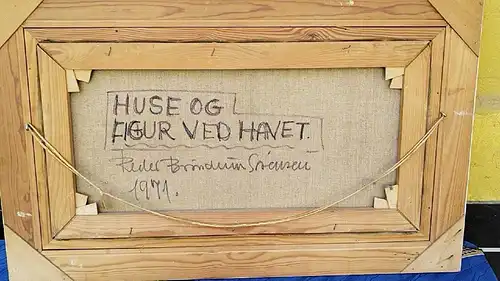 HUSE OG
FIGUR VED HAVET.
Peder Brøndum Sørensen
1971.